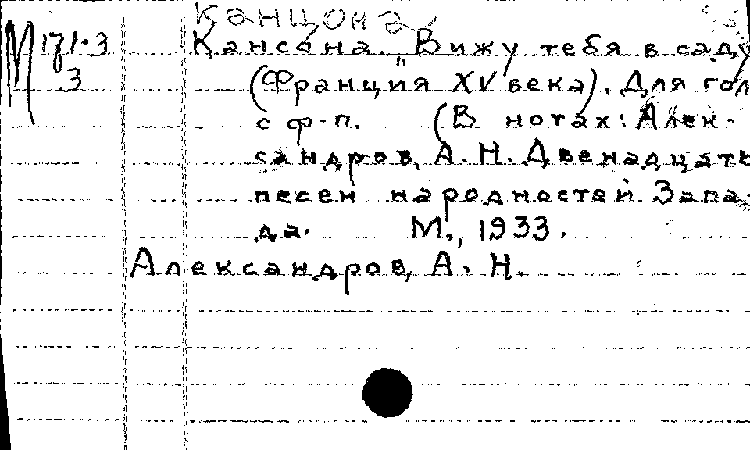 Канцона
М 171.3 Кансона. "Вижу тебя в саду
3 (Франция XV века). Для гол
с ф-п. (В нотах: Алек-
сандров, А. Н. Двенадцать
песен народностей Запа-
да. М., 1933.
Александров, А. Н.